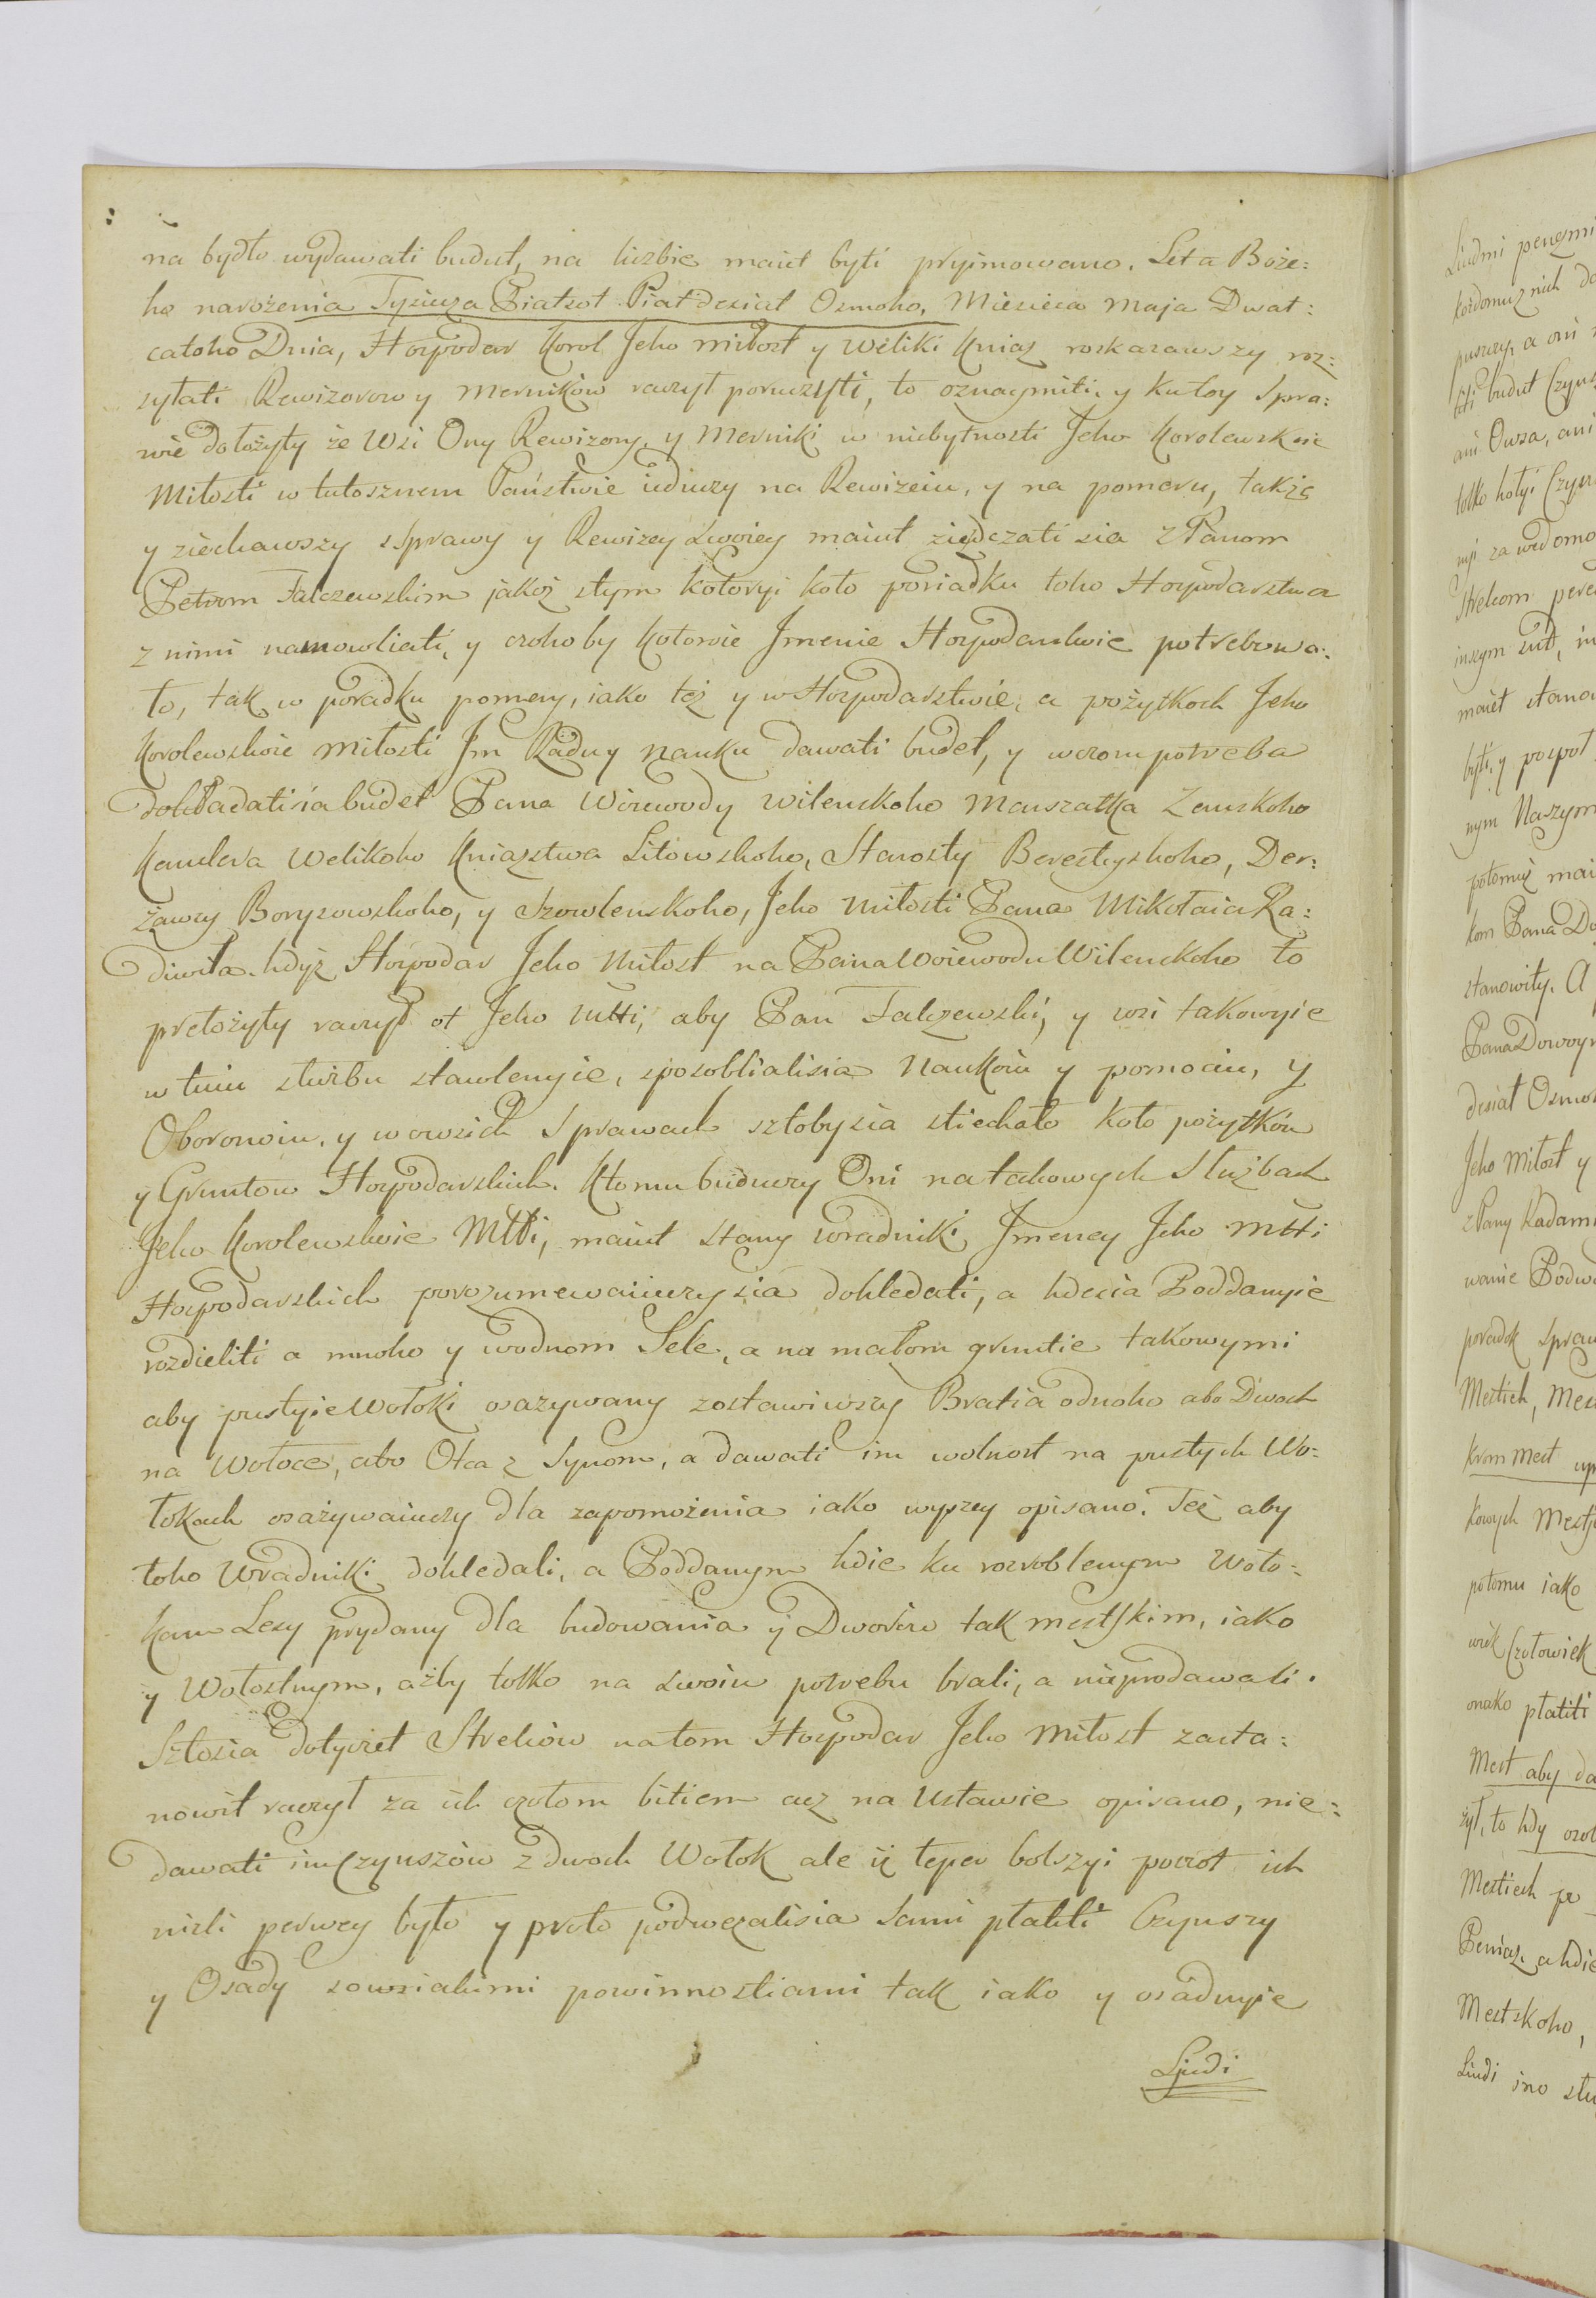 na bydło wydawati budut, na liczbie maiut byti pryimowano. Leta Boże:
ho narożenia Tysiucza Piatsot Piatdesiat Osmoho, Miesieca Maja Dwat:
catoho Dnia, Hospodar Korol Jeho miłost y Weliki Kniaz roskazawszy roz:
syłati Rewizorow y Mernikow raczył poruczyti, to oznaymiti, y ku toy Spra:
wie dołożyty że Wsi Ony Rewizory, y Merniki w niebytnosti Jeho Korolewskoie
Miłosti w tutosznem Państwie iduczy na Rewizeiu, y na pomeru, także
y ziechawszy z Sprawy y Rewizey swoiey maiut zieżdczati sia z Panom
Petrom Falczewskim jakoż stym kotoryi koło poriadku toho Hospodarstwa
z nimi namowliati, y czoho by kotoroie Imenie Hospodarskoie potrebowa:
ło, tak w poradku pomery, iako też y w Hospodarstwie, a pożytkoch Jeho
Korolewskoie miłosti Im Radu y nauku dawati budet, y w czom potreba
dokładatisia budet Pana Woiewody Wilenskoho Marszałka Zemskoho
Kanclera Welikoho Kniazstwa Litowskoho, Starosty Berestyskoho, Der:
żawcy Borysowskoho, y Szowlenskoho, Jeho Miłosti Pana Mikołaia Ra:
diwiła. hdyż Hospodar Jeho Miłost na Pana Woiewodu Wilenskoho to
prełożyty raczył ot Jeho Mtti, aby Pan Falczewski, y wsi takowyie
w tuiu służbu stawlenyie, sposoblialisia Naukoiu y pomociu, y
Oboronoiu, y wo wsich Sprawach sztoby sia stiechało koło pożytków
y Gruntow Hospodarskich. Ktomu buduczy Oni na takowych Służbach
Jeho Korolewskoie Mtti, maiut stany wradniki Imeney Jeho Mtti
Hospodarskich porozumewaiuczysia dohledati, a hdesia Poddanyie
rozdieliti a mnoho y wodnom Sele, a na małom gruntie takowymi
aby pustyie Wołoki osażywany zostawiwszy Bratia odnoho abo Dwoch
na Wołoce, abo Otca z Synom, a dawati im wolnost na pustych Wo:
łokach osażywaiuczy dla zapomożenia iako wyszey opisano. Też aby
toho Wradniki dohledali, a Poddanym hdie ku rozroblenym Woło:
kam Lesy prydany dla budowania y Dworów tak mestskim, iako
y Wołostnym, ażby tolko na swoiu potrebu brali, a nieprodawali.
Sztosia dotyczet Strelców natom Hospodar Jeho Miłost zasta:
nowił raczył za ich czołom bitiem acz na Ustawie opisano, nie:
dawati im Czynszów z dwoch Wołok ale iż teper bolszyi poczot ich
niżli perwey było y proto podwezalisia sami płatiti Czynszy
y Osady zowsiakimi powinnostiami tak iako y osadnyie
Ljudi